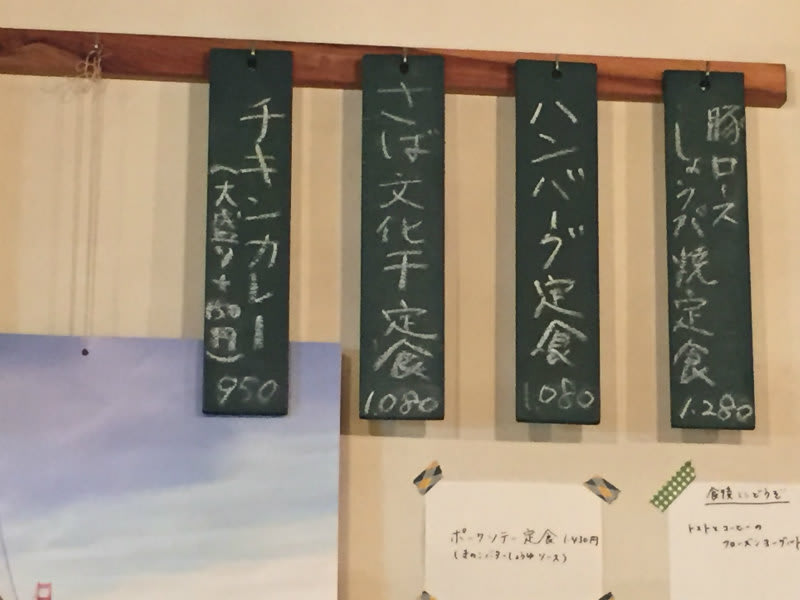 豚ロース
しょうが焼定食
1.280
ハンバーグ定食
1.080
さば文化干定食
1.080
チキンカレー
(大盛り+150円)
950
ポークソテー定食 1.430円
(きのこバターしょうゆソース)
食後にどうぞ
トマトとコーヒーの
フローズンヨーグルト